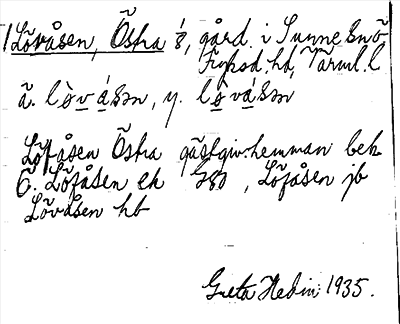 Lövåsen, Östra 1/8, gård i Sunne snö
Fryksd. hd, Värml. l
ä. lò̱vá̱sən, y. lò̱vá̱sən
Löfåsen Östra gästgiv: hemman bek
Ö. Löfåsen ek Gso, Löfåsen jb
Lövåsen hb
Greta Hedin 1935.